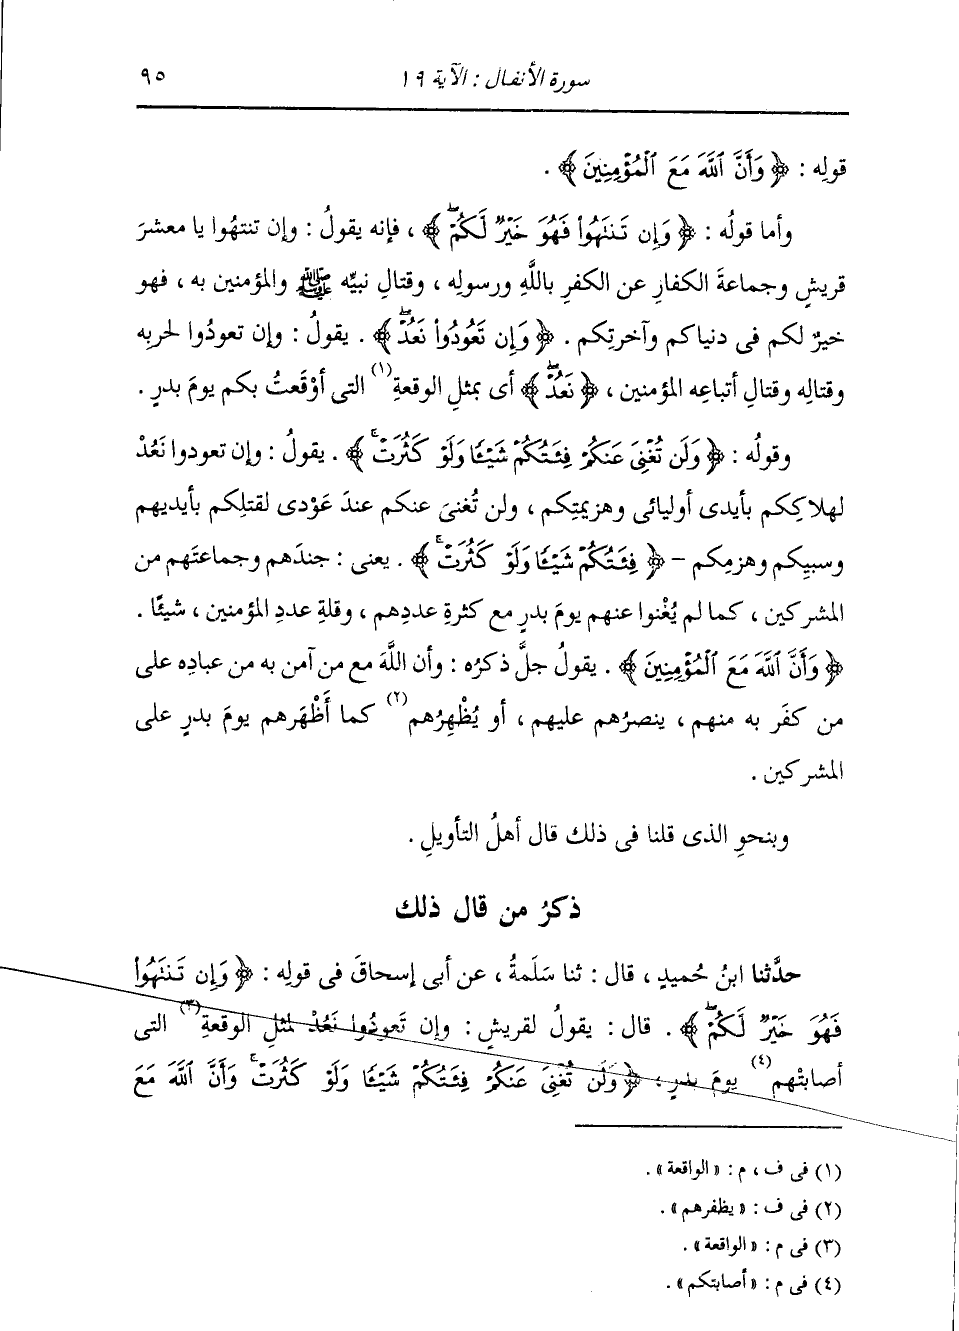 سورة الأنفال : الآية ١٩
٩٥
قولِه : ﴿ وَأَنَّ ٱللَّهَ مَعَ ٱلْمُؤْمِنِينَ ﴾ .
وأما قولُه : ﴿ وَإِن تَنتَهُوا۟ فَهُوَ خَيْرٌ لَّكُمْ ۖ ﴾ ، فإنه يقولُ : وإن تنتهُوا يا معشرَ
قريشٍ وجماعةَ الكفارِ عن الكفرِ باللَّهِ ورسولِه ، وقتالِ نبيِّه ﷺ والمؤمنين به ، فهو
خيرٌ لكم فى دنياكم وآخرتِكم . ﴿ وَإِن تَعُودُوا۟ نَعُدْ ۖ ﴾ . يقولُ : وإن تعودُوا لحربِه
وقتالِه وقتالِ أتباعِه المؤمنين ، ﴿ نَعُدْ ۖ ﴾ أى بمثلِ الوقعةِ (١) التى أوْقَعتُ بكم يومَ بدرٍ .
وقولُه : ﴿ وَلَن تُغْنِىَ عَنكُمْ فِئَتُكُمْ شَيْـًٔا وَلَوْ كَثُرَتْ ۚ ﴾ . يقولُ : وإن تعودوا نَعُدْ
لهلاكِكم بأيدى أوليائى وهزيمتِكم ، ولن تُغنىَ عنكم عندَ عَوْدى لقتلِكم بأيديهم
وسبيِكم وهزمِكم - ﴿ فِئَتُكُمْ شَيْـًٔا وَلَوْ كَثُرَتْ ۚ ﴾ . يعنى : جندَهم وجماعتَهم من
المشركين ، كما لم يُغْنوا عنهم يومَ بدرٍ مع كثرةِ عددِهم ، وقلةِ عددِ المؤمنين ، شيئًا .
﴿ وَأَنَّ ٱللَّهَ مَعَ ٱلْمُؤْمِنِينَ ﴾ . يقولُ جلَّ ذكرُه : وأن اللَّهَ مع من آمن به من عبادِه على
من كفَر به منهم ، ينصرُهم عليهم ، أو يُظْهِرُهم (٢) كما أَظْهَرهم يومَ بدرٍ على
المشركين .
وبنحوِ الذى قلنا فى ذلك قال أهلُ التأويلِ .
ذكرُ من قال ذلك
حدَّثنا ابنُ حُميدٍ ، قال : ثنا سَلَمةُ ، عن أبى إسحاقَ فى قولِه : ﴿ وَإِن تَنتَهُوا۟
فَهُوَ خَيْرٌ لَّكُمْ ۖ ﴾ . قال : يقولُ لقريشٍ : وإن تَعودُوا نَعُدْ لمثلِ الوقعةِ (٣) التى
أصابتْهم (٤) يومَ بدرٍ ؛ ﴿ وَلَن تُغْنِىَ عَنكُمْ فِئَتُكُمْ شَيْـًٔا وَلَوْ كَثُرَتْ ۚ وَأَنَّ ٱللَّهَ مَعَ
(١) فى ف ، م : « الواقعة » .
(٢) فى ف : « يظفرهم » .
(٣) فى م : « الواقعة » .
(٤) فى م : « أصابتكم » .